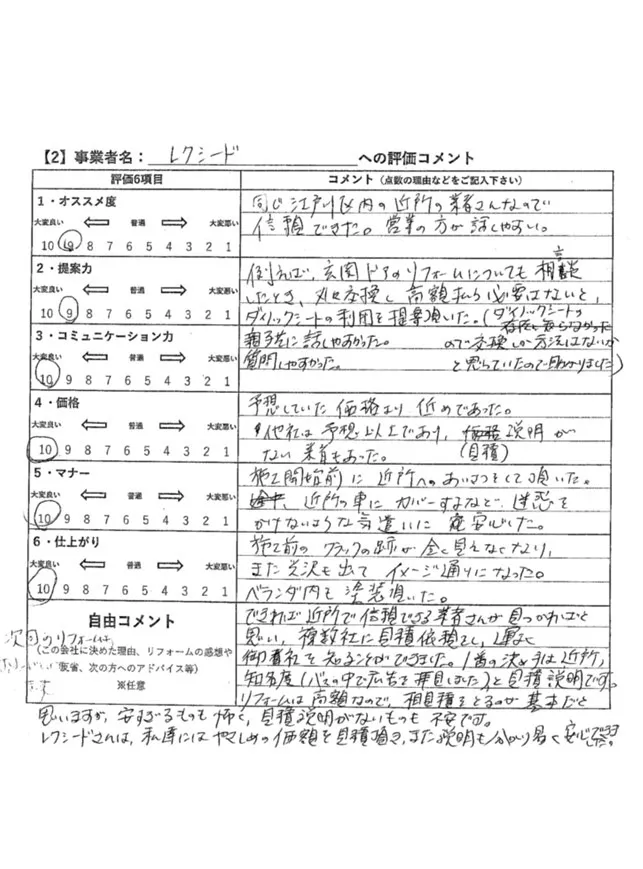 【2】事業者名： レクシード への評価コメント
評価6項目
コメント（点数の理由などをご記入下さい）
1・オススメ度
大変良い 普通 大変悪い
10 9 8 7 6 5 4 3 2 1
同じ江戸川区内の近所の業者さんなので
信頼できた。営業の方が話しやすい。
2・提案力
大変良い 普通 大変悪い
10 9 8 7 6 5 4 3 2 1
例えば、玄関ドアのリフォームについても相談
したとき、丸々交換し高額払う必要はないと、
ダイノックシートの利用を提案頂いた。(ダイノックシートの
存在も知らなかった
ので交換しか方法はないか
と思っていたので助かりました)
3・コミュニケーション力
大変良い 普通 大変悪い
10 9 8 7 6 5 4 3 2 1
親切に話しやすかった。
質問しやすかった。
4・価格
大変良い 普通 大変悪い
10 9 8 7 6 5 4 3 2 1
予想していた価格より低めであった。
他社は予想以上であり、説明が
(見積)
ない業者もあった。
5・マナー
大変良い 普通 大変悪い
10 9 8 7 6 5 4 3 2 1
施工開始前に近所へのあいさつをして頂いた。
近所の車にカバーするなど、迷惑を
かけないような気遣いに安心した。
6・仕上がり
大変良い 普通 大変悪い
10 9 8 7 6 5 4 3 2 1
施工前のクラックの跡が全く見えなくなり、
また光沢も出てイメージ通りになった。
ベランダ内も塗装頂いた。
自由コメント
次回のリフォームは
(この会社に決めた理由、リフォームの感想や
反省、次の方へのアドバイス等)
※任意
できれば近所で信頼できる業者さんが見つかればと
思い、複数社に見積依頼をし、運よく
御社を知ることができました。1番の決め手は近所、
知名度(バスの中で広告を拝見しました)と見積説明です。
リフォームは高額なので、相見積をとるのが基本だと
思いますが、安すぎるものも怖く、見積説明がないものも不安です。
レクシードさんは、私達にはやさしめの価額を見積頂き、また説明も分かり易く安心できました。